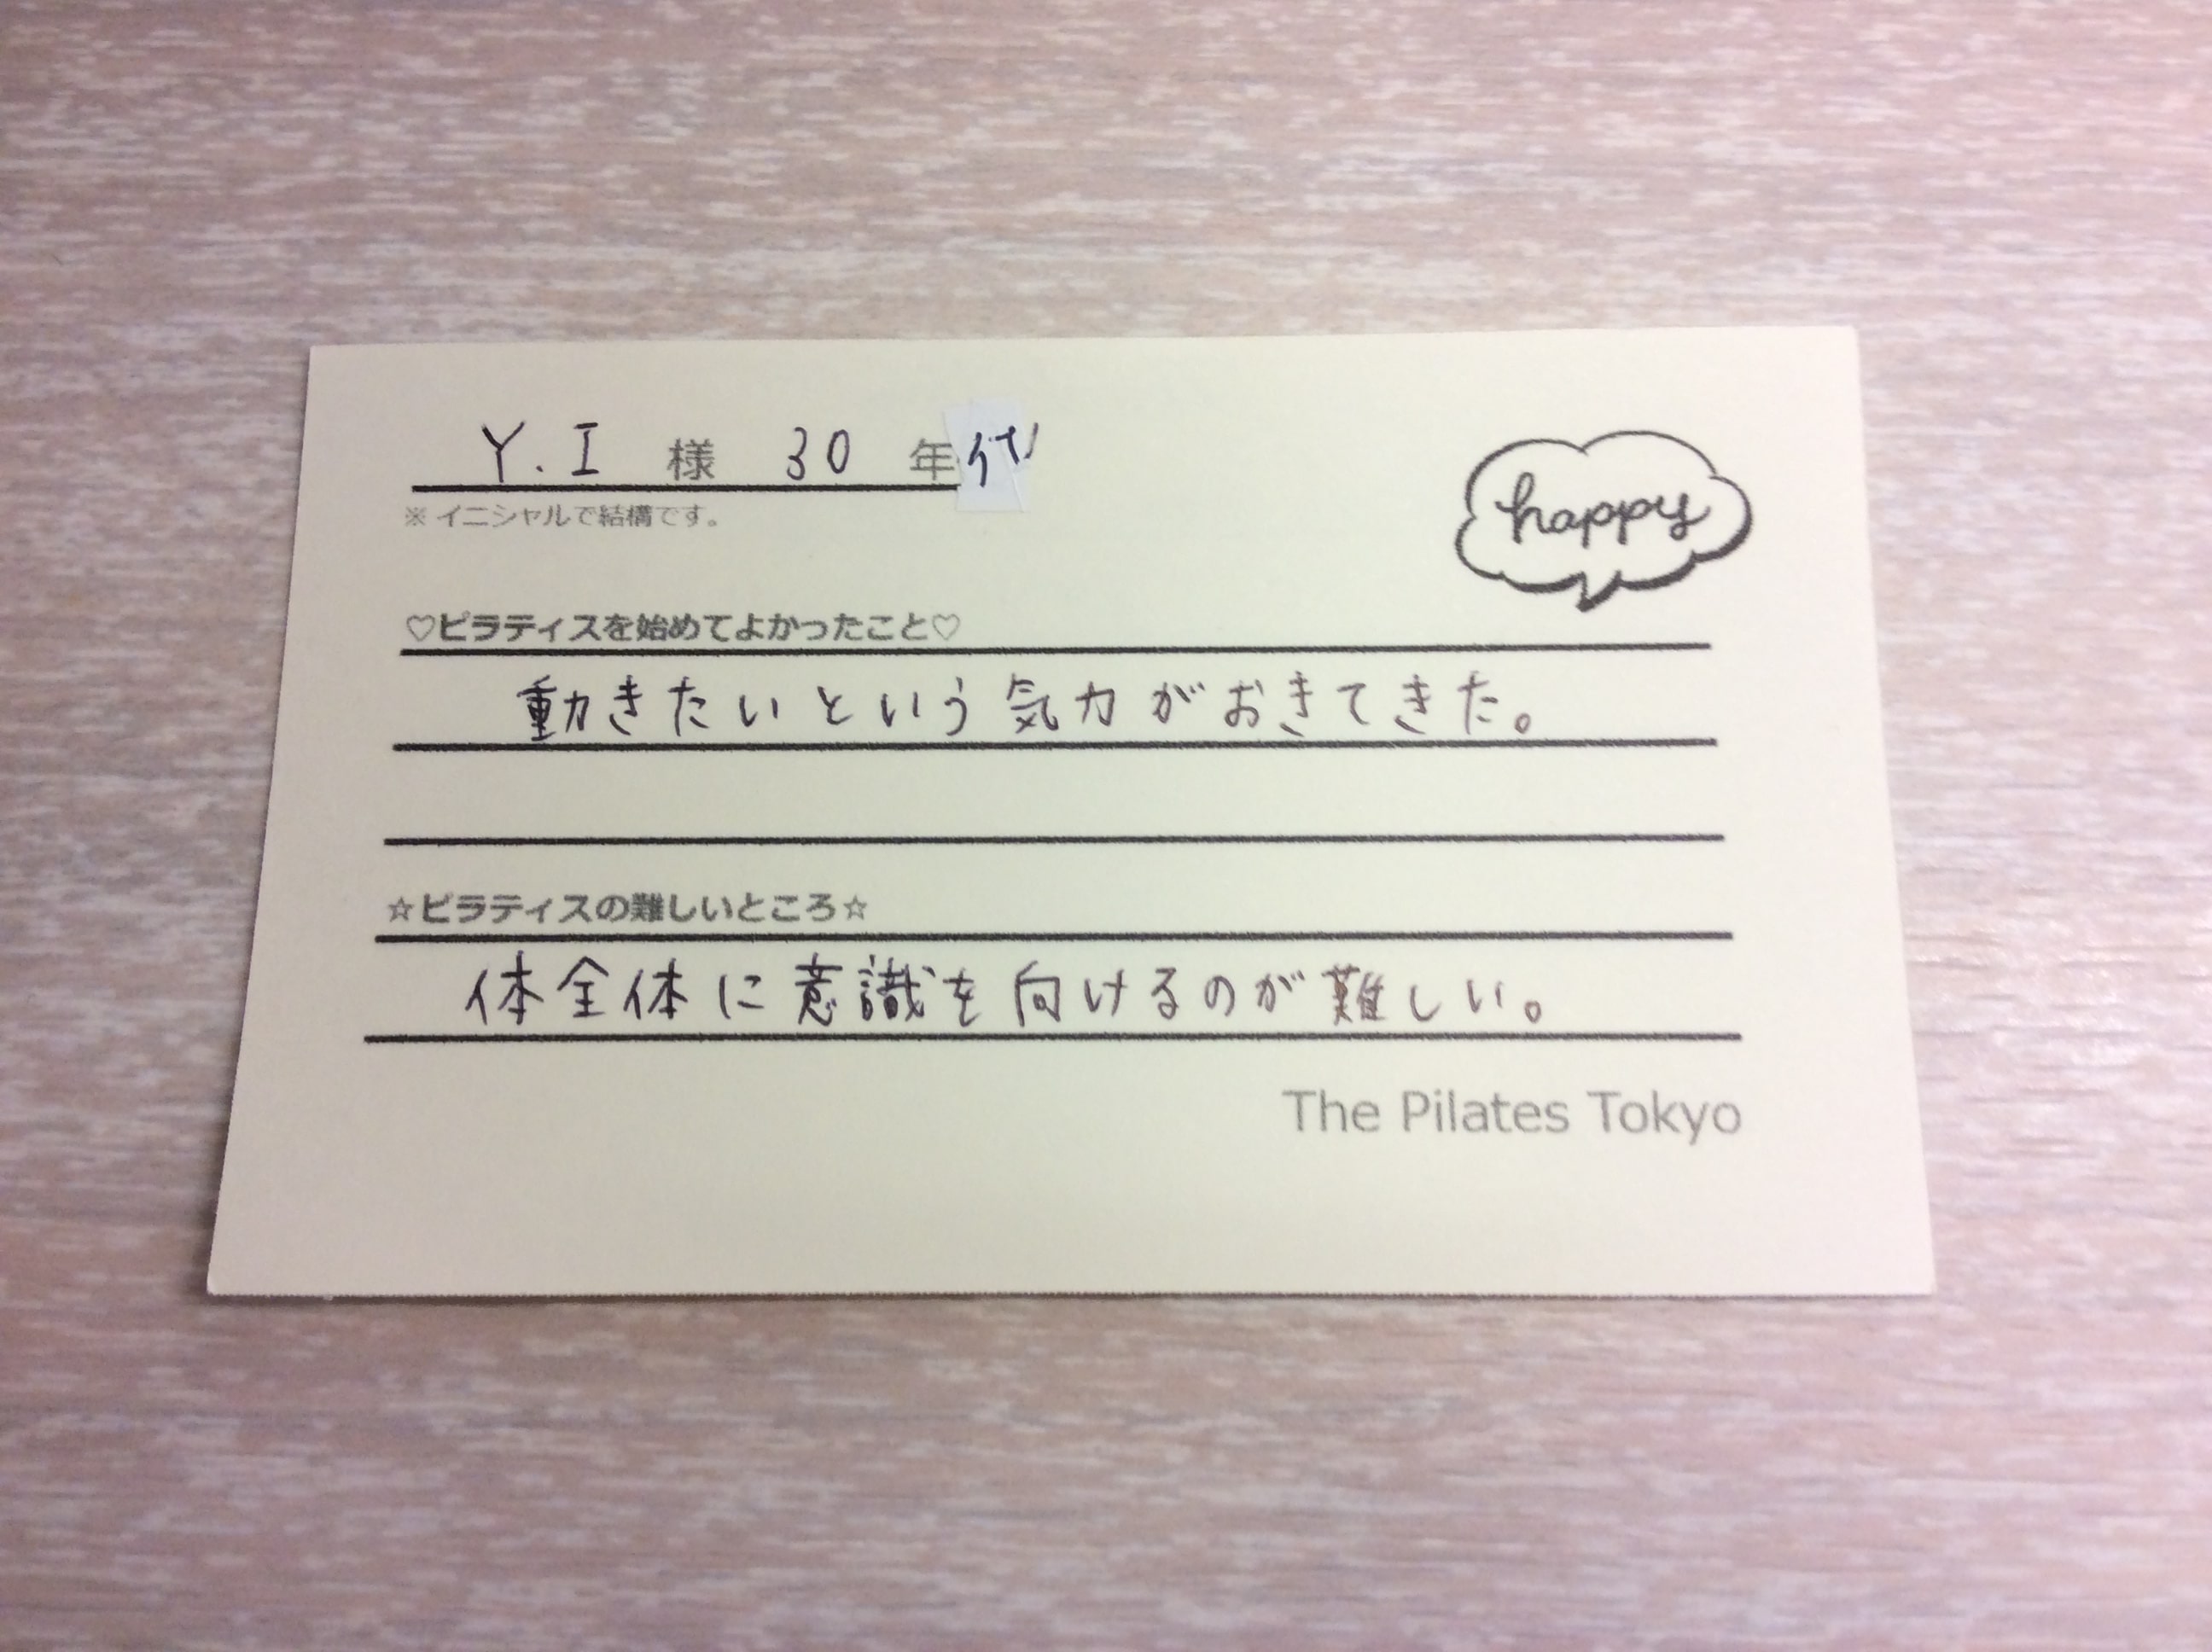 Y.I 様 30 年代
※イニシャルで結構です。
happy
♡ピラティスを始めてよかったこと♡
動きたいという気力がおきてきた。
☆ピラティスの難しいところ☆
体全体に意識を向けるのが難しい。
The Pilates Tokyo